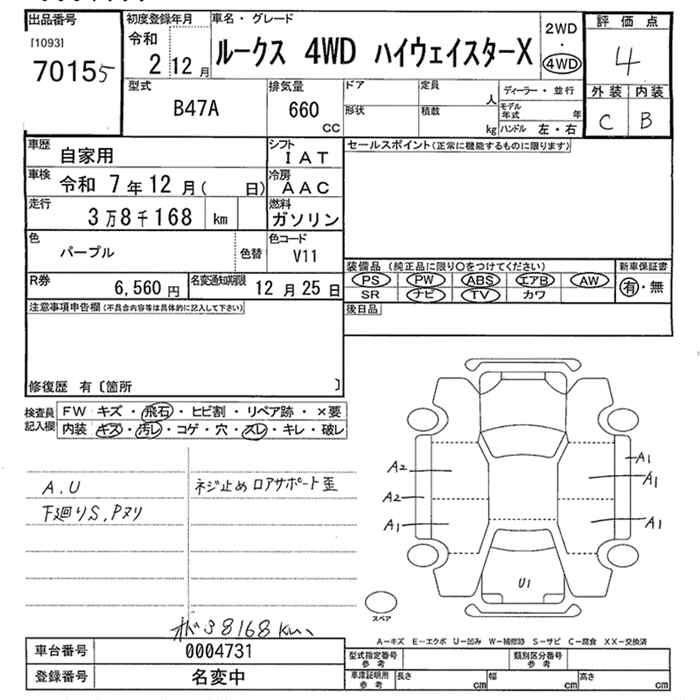 出品番号
[1093]
70155
初度登録年月
令和
2 12月
車名・グレード
ルークス 4WD ハイウェイスターX
2WD
・
4WD
評価点
4
外装 内装
C B
型式
B47A
排気量
660
CC
ドア
定員
人
形状
積載
kg
ディーラー・並行
モデル年式
年
ハンドル 左・右
車歴
自家用
シフト
IAT
車検
令和 7年12月( 日)
冷房
AAC
走行
3万8千168 km
燃料
ガソリン
色
パープル
色替
色コード
V11
R券
6,560円
名変通知期限
12月25日
セールスポイント(正常に機能するものに限ります)
装備品 (純正品に限り○をつけてください)
新車保証書
PS PW ABS エアB AW
SR ナビ TV カワ
有・無
後日品
注意事項申告欄(不具合内容等は具体的に記入して下さい)
修復歴 有〔箇所 〕
検査員
記入欄
FW キズ・飛石・ヒビ割・リペア跡・×要
内装 キズ・汚レ・コゲ・穴・スレ・キレ・破レ
A.U
下廻りS.Pヌリ
ネジ止め ロアサポート歪
A2
A2
A1
A1
A1
A1
U1
スペア
38168km
A−キズ E−エクボ U−凹み W−補修跡 S−サビ C−腐食 XX−交換済
車台番号
0004731
登録番号
名変中
型式指定番号
参考
類別区分番号
参考
車庫証明用
参考
長さ cm
幅 cm
高さ cm